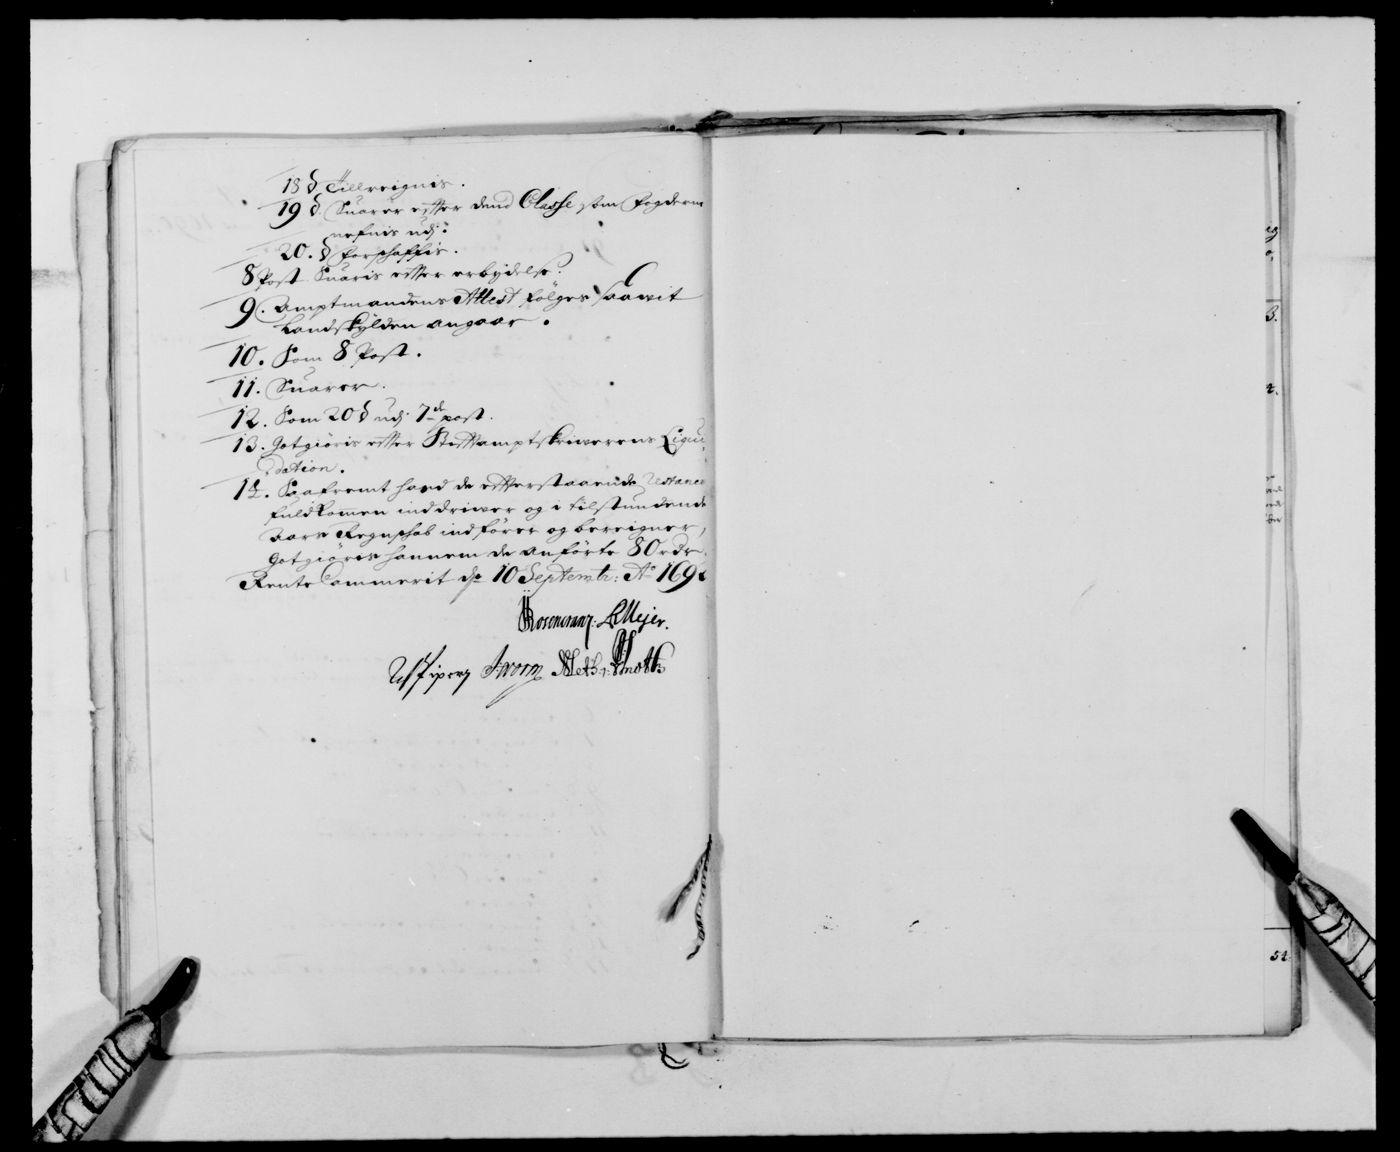 18 d Tillreignis.
19 d. Suarer efter dend Classe som Fogderne
nefnis udj.
20. d Forschaffis.
8 Post Suaris efter erbydelse.
9. Amptmandens Attest følges saawit
Landskylden angaar.
10. Som 8 Post.
11. Suarer.
12. Som 20 d udj 7de post.
13. Gotgiøris efter Stiftamptskriwerens Liqui-
dation.
14. Saafremt hand de efterstaaende Restancer
fuldkommen inddriwer og i tilstundende
Aars Regnschab indfører og bereigner,
Gotgiøres hannem de anførte 80 rdr.
Rente Cammerit d. 10 Septemb: Ao 169
Rosencrantz. Meijer.